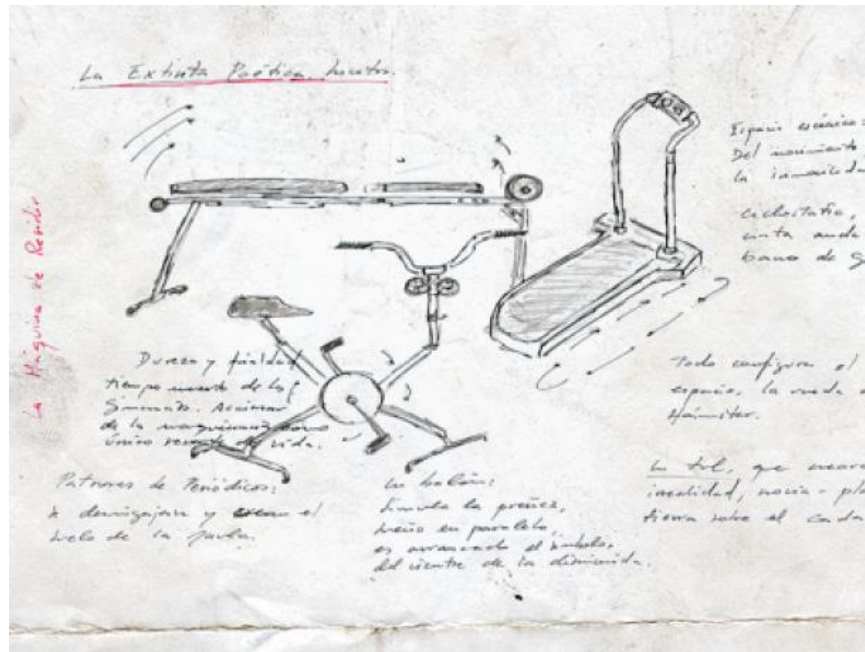 La Extinta Poética. nuestra.
La Máquina de Residir
Espacio escénico:
Del movimiento
la inmovilida
ciclostatic,
cinta anda
banco de G
Dureza y frialdad
tiempo muerto de los
Gimnasios.
de la maquinaria como
único de vida.
Todo configura el
espacio, la rueda
hámster.
Patrones de Periódicos:
se desmigajan y crean el
suelo de la jaula.
Un balón:
simula la preñez,
sueño en paralelo,
es arrancado el símbolo,
del vientre de la disminuida.
Un tul, que
irrealidad, novia -
tierra sobre el